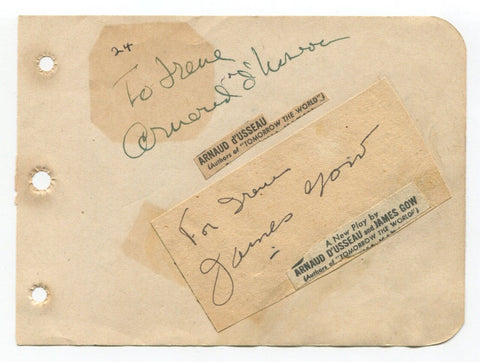 24
To Irene
Arnaud d'Usseau
ARNAUD d'USSEAU
(Authors of "TOMORROW THE WORLD")
For Irene
James Gow
A New Play by
ARNAUD D'USSEAU and JAMES GOW
(Authors of "TOMORROW THE WORLD")